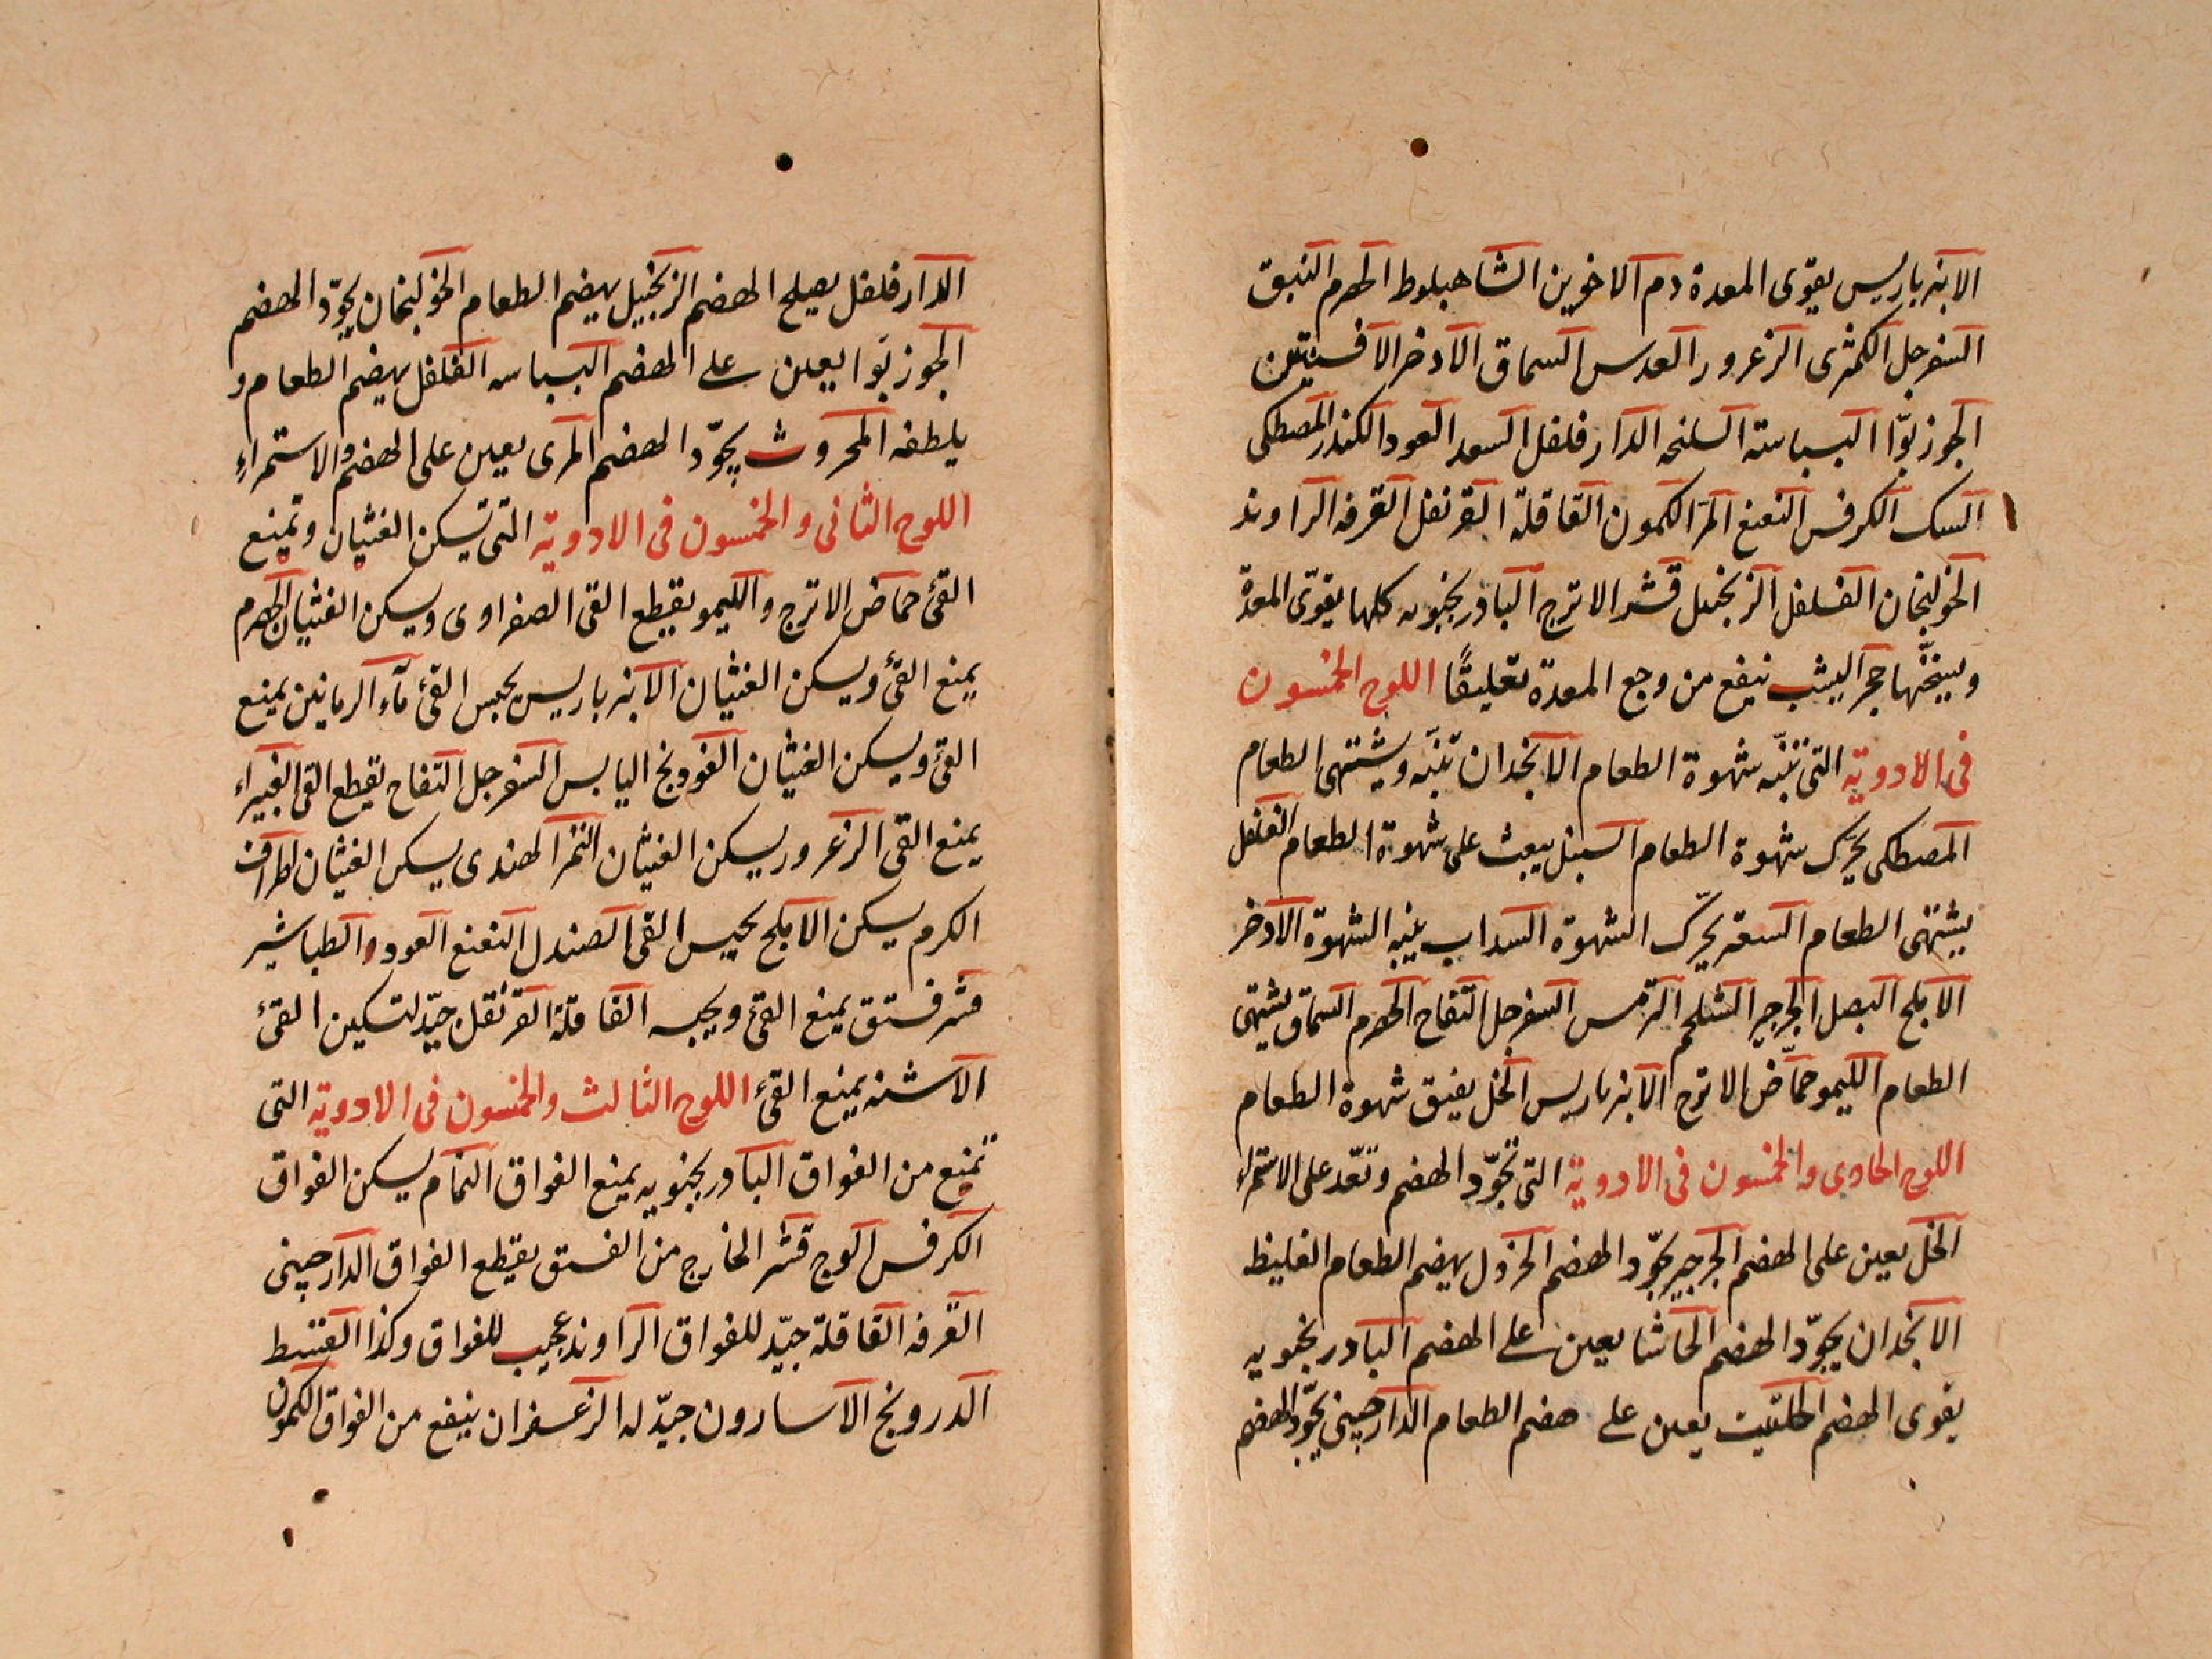 الانبرباريس يقوى المعدة دم الاخوين الشاهبلوط الحصرم النبق
السفرجل الكمثرى الزعرور العدس السماق الاذخر الافسنتين
الجوزبوّا البسباسة السلنجه الدارفلفل السعد العود الكندر المصطكى
السك الكرفس النعنع المر الكمون القاقلة القرنفل القرفه الراوند
الخولنجان الفلفل الزنجبيل قشر الاترج البادرنجبويه كلها يقوّى المعدة
ويسخّنها حجر اليشب ينفع من وجع المعدة تعليقًا اللوح الخمسون
فى الادوية التى تنبّه شهوة الطعام الانجدان تنبّه ويشتهى الطعام
المصطكى يحرّك شهوة الطعام السنبل يبعث على شهوة الطعام الفلفل
يشتهى الطعام السعتر يحرّك الشهوة السداب ينبه الشهوة الاذخر
الاملج البصل الجرجير الشلجم الترمس السفرجل التفاح الحصرم السماق يشتهى
الطعام الليمو حمّاض الاترج الانبرباريس الخل يفتق شهوة الطعام
اللوح الحادى والخمسون فى الادوية التى تجوّد الهضم وتعّد على الاستمراء
الخل يعين على الهضم الجرجير يجوّد الهضم الخردل يهضم الطعام الغليظ
الانجدان يجوّد الهضم الحاشا يعين على الهضم البادرنجبويه
يقوى الهضم الحلتيت يعين على هضم الطعام الدارچينى يجوّد الهضم
الدارفلفل يصلح الهضم الزنجبيل يهضم الطعام الخولنجان يجوّد الهضم
الجوزبوّا يعين على الهضم البسباسه الفلفل يهضم الطعام و
يلطفه المحروث يجوّد الهضم المرى يعين على الهضم والاستمراء
اللوح الثانى والخمسون فى الادوية التى تسكن الغثيان وتمنع
القئ حماض الاترج والليمو يقطع القئ الصفراوى ويسكن الغثيان الحصرم
يمنع القئ ويسكن الغثيان الانبرباريس يحبس القئ مآء الرمانين يمنع
القئ ويسكن الغثيان الفودنج اليابس السفرجل التفاح يقطع القئ الغبيراء
يمنع القئ الزعرور يسكن الغثيان التمر الهندى يسكن الغثيان اطراف
الكرم يسكن الاملج يحبس القئ الصندل النعنع العود والطباشير
قشر فستق يمنع القئ ويحبسه القاقلة القرنفل جيّد لتسكين القئ
الاشنه يمنع القئ اللوح الثالث والخمسون فى الادوية التى
تمنع من الفواق البادرنجبويه يمنع الفواق النمام يسكن الفواق
الكرفس الوج قشر الخارج من الفستق يقطع الفواق الدارچينى
القرفه القاقلة جيّد للفواق الراوند عجيب للفواق وكذا القسط
الدرونج الاسارون جيّد له الزعفران ينفع من الفواق الكمون